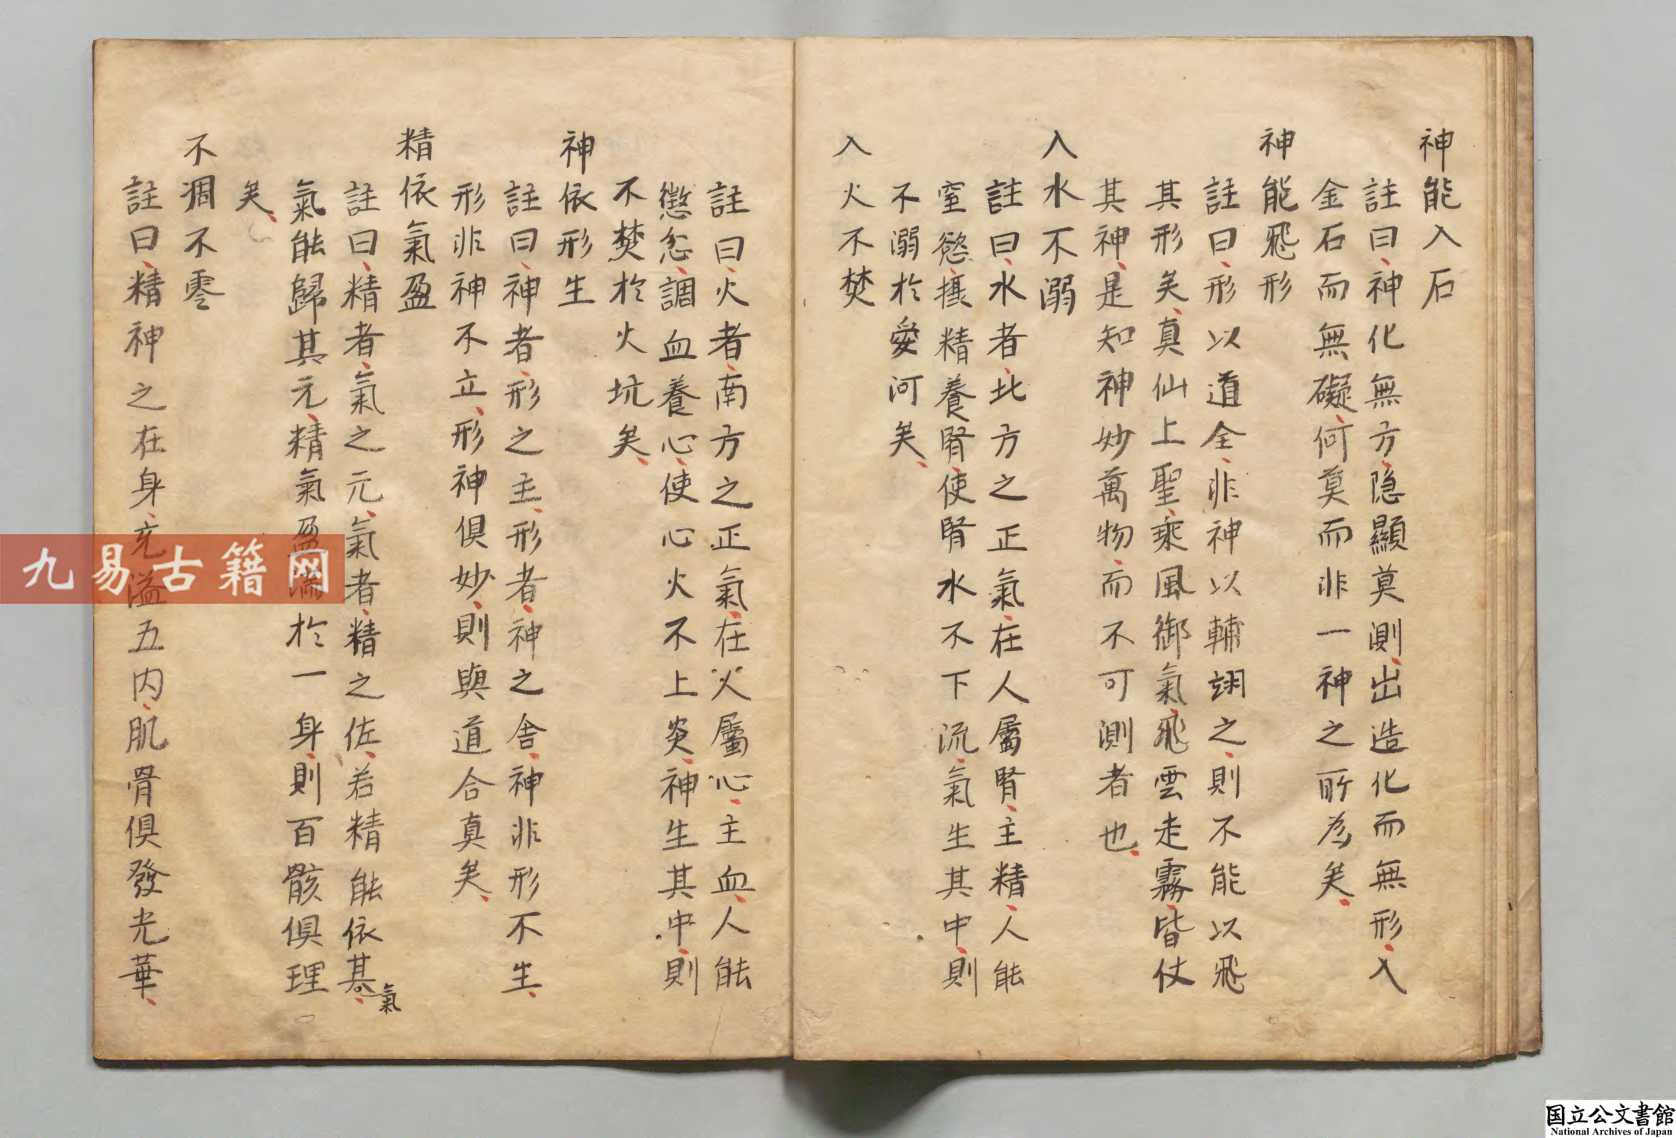 神能入石
註曰神化無方隐顯莫測出造化而無形入
金石而無礙何莫而非一神之所為矣
神能飛形
註曰形以道全非神以輔翊之則不能以飛
其形矣真仙上聖乘風御氣飛雲走霧皆仗
其神是知神妙萬物而不可測者也
入水不溺
註曰水者北方之正氣在人屬腎主精人能
窒慾攝精養腎使腎水不下流氣生其中則
不溺於愛河矣
入火不焚
註曰火者南方之正氣在火屬心主血人能
懲忿調血養心使心火不上炎神生其中則
不焚於火坑矣
神依形生
註曰神者形之主形者神之舍神非形不生
形非神不立形神俱妙則與道合真矣
精依氣盈
註曰精者氣之元氣者精之佐若精能依其氣
氣能歸其元精氣盈滿於一身則百骸俱理
矣
不凋不零
註曰精神之在身充溢五内肌骨俱發光華
九易古籍网
国立公文書館
National Archives of Japan